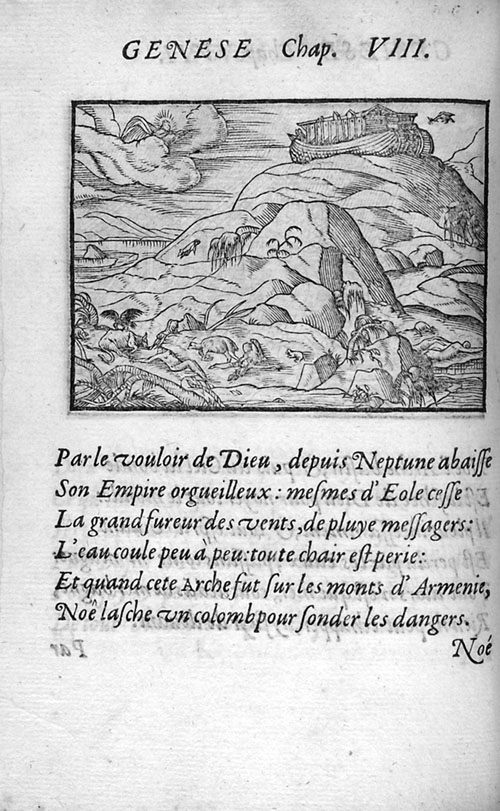 GENESE Chap. VIII.
Par le vouloir de Dieu, depuis Neptune abaiſſe
Son Empire orgueilleux: meſmes d'Eole ceſſe
La grand fureur des vents, de pluye meſſagers:
L'eau coule peu à peu: toute chair eſt perie:
Et quand cete Arche fut ſur les monts d'Armenie,
Noê laſche vn colomb pour ſonder les dangers.
Noé